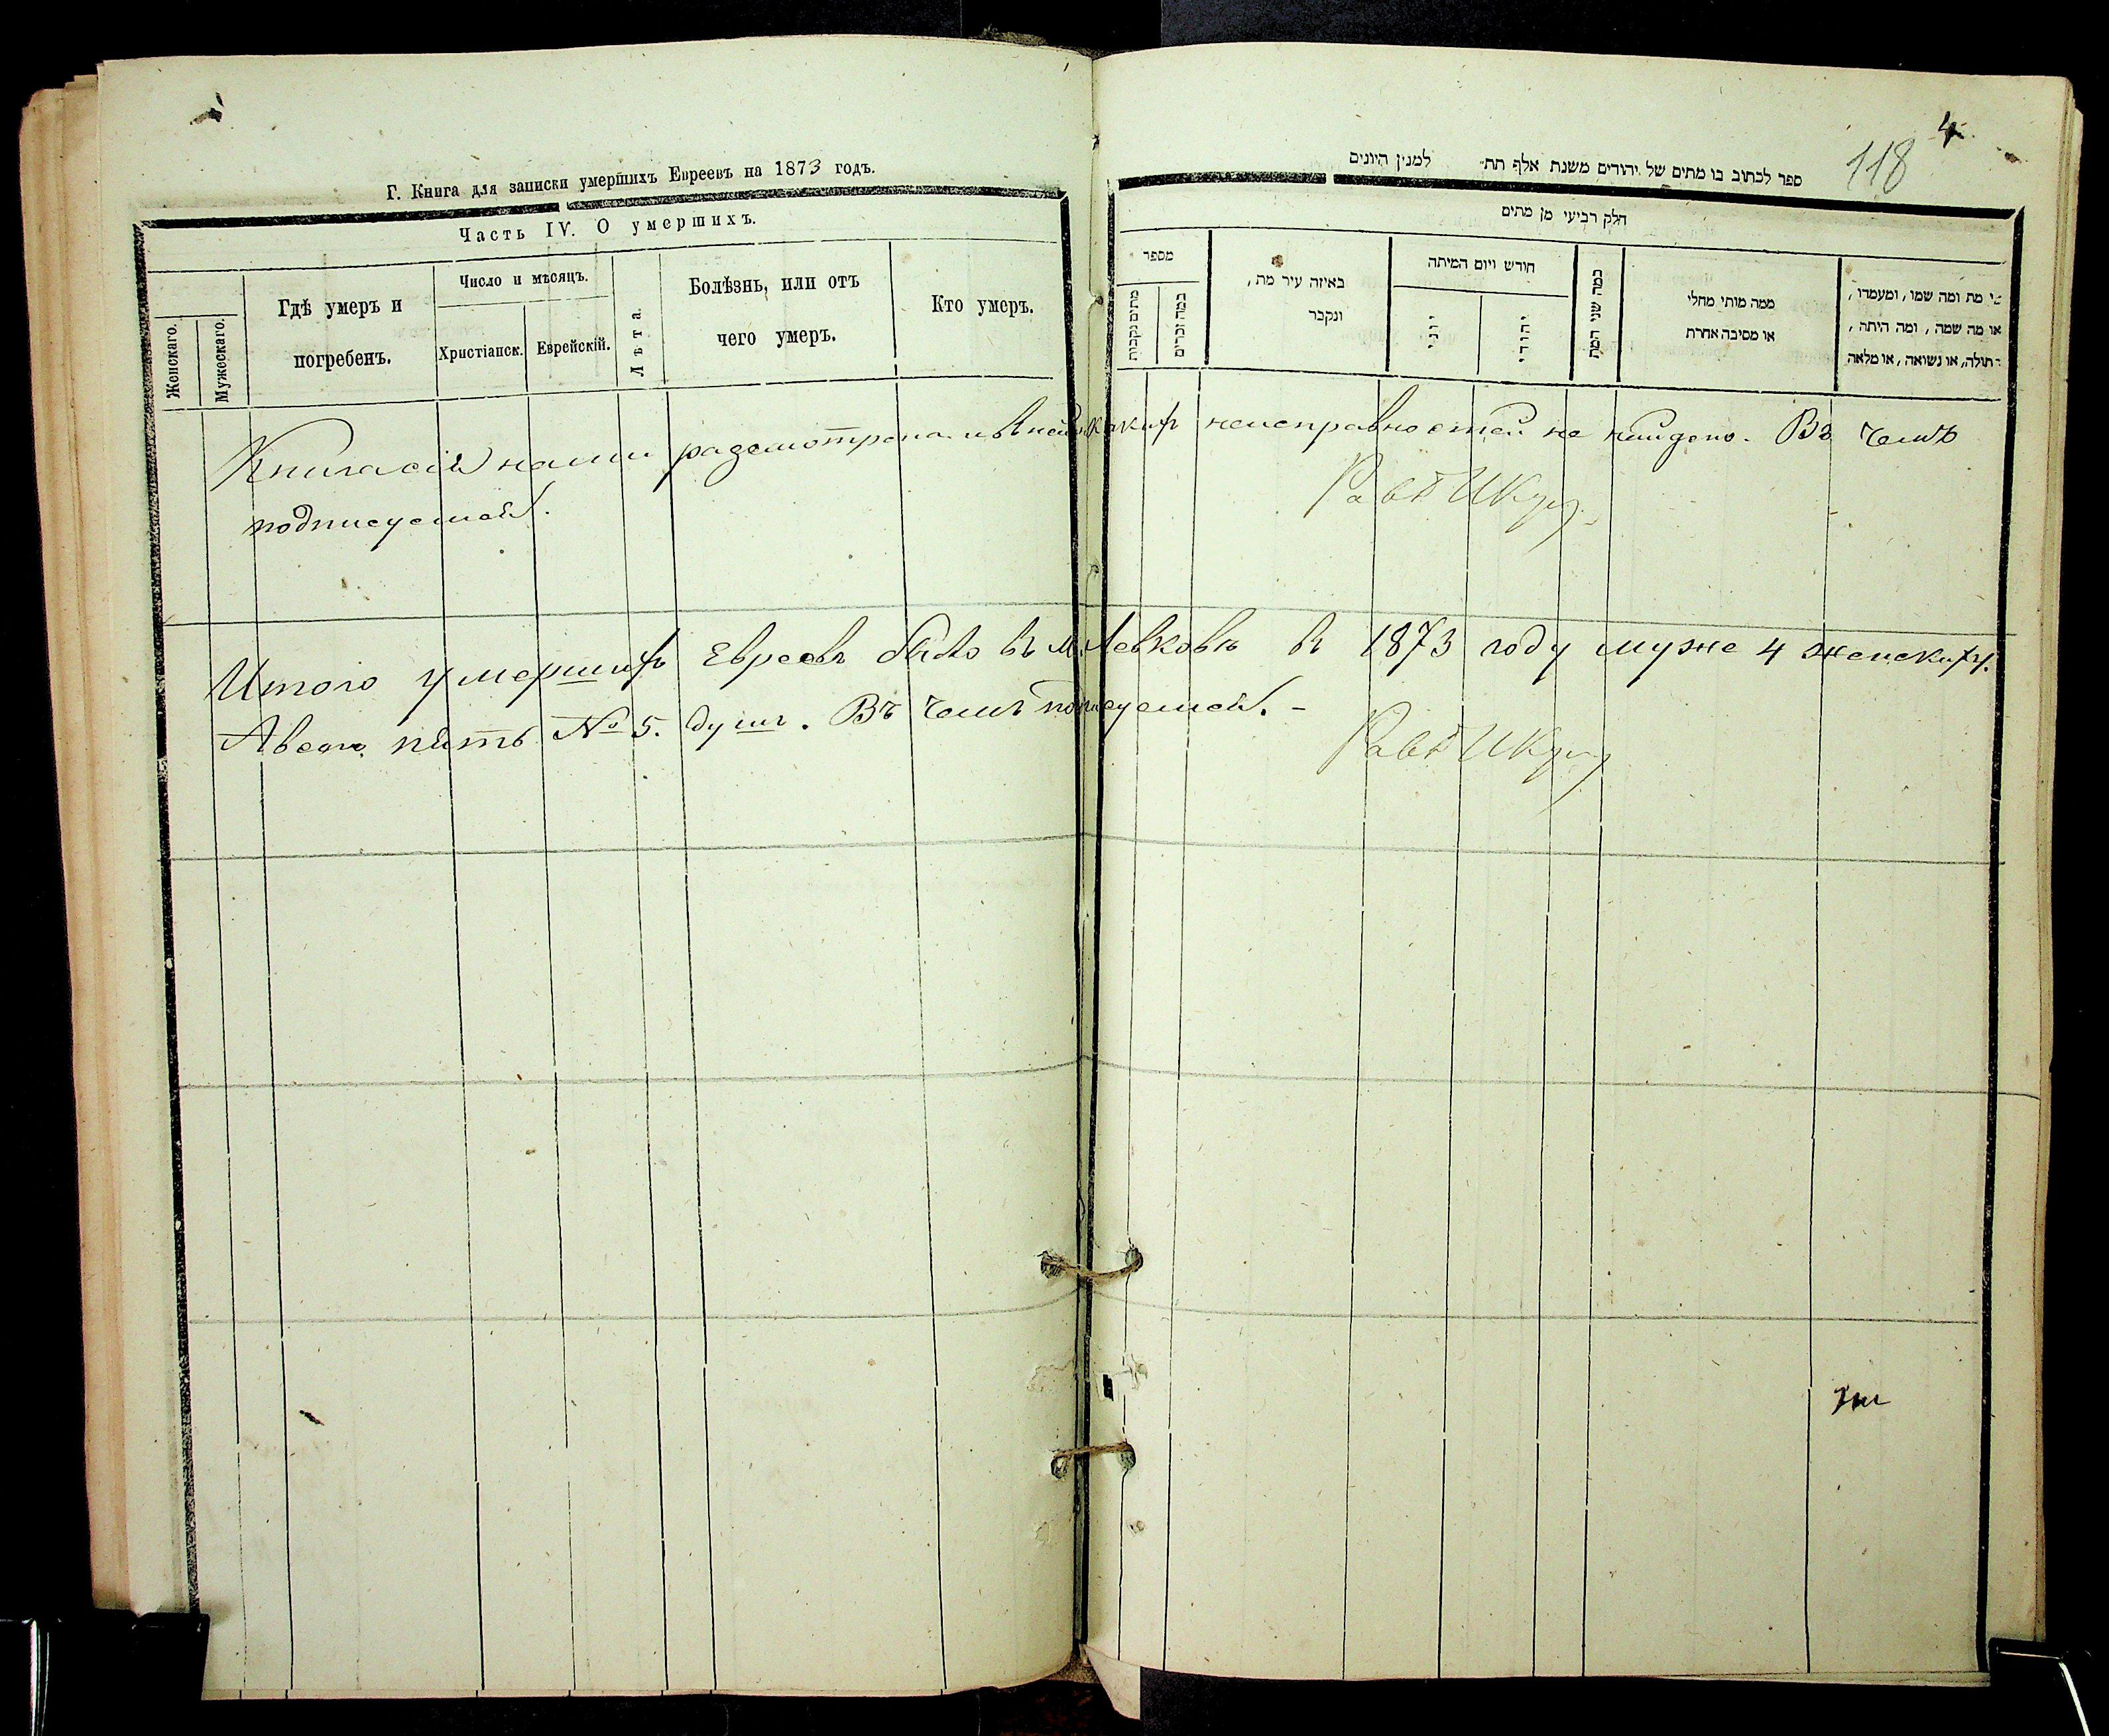 Г. Книга для записки умершихъ Евреевъ на 1873 годъ.
Часть IV. О умершихъ.
Женскаго.
Мужескаго.
Гдѣ умеръ и
погребенъ.
Число и мѣсяцъ.
Христіанск.
Еврейскій.
Лѣта.
Болѣзнь, или отъ
чего умеръ.
Кто умеръ.
118
4
ספר לכתוב בו מתים של יהודים משנת אלף תת למנין היונים
חלק רביעי מן מתים
מספר
מתים נקבות
כמה זכרים
באיזה עיר מת,
ונקבר
חודש ויום המיתה
יוני
יהודי
כמה שני המת
ממה מותי מחלי
או מסיבה אחרת
מי מת ומה שמו, ומעמדו,
או מה שמה, ומה היתה,
תולה, או נשואה, או מלאה
Книга сія нами разсмотрена и въ ней никакихъ неисправностей не найдено. Въ чемъ
подписуемся.
Итого умершихъ Евреевъ было въ м. Левковѣ въ 1873 году муже 4 женскихъ 1.
А всего пять № 5. душъ. Въ чемъ подписуемся. -